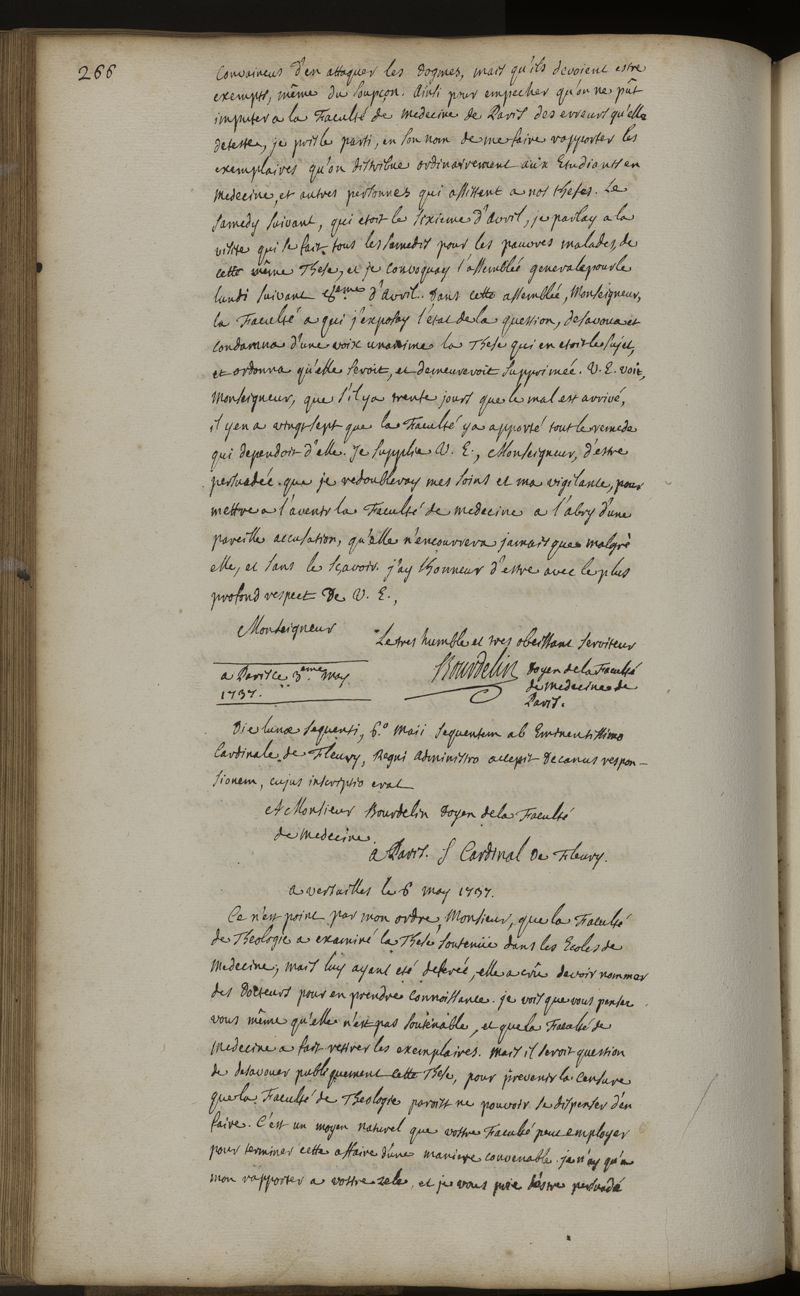 266
Convaincus d'en attaquer les dogmes, mais qu'ils devoient estre
exempts, même du soupçon. Ainsi pour empecher qu'on ne pût
imputer a la Faculté de Medecine de Paris des erreurs qu'elle
deteste, je pris le parti, en son nom de me faire rapporter les
exemplaires qu'on distribue ordinairement aux Etudiants en
Medecine, et autres personnes qui assistent a nos théses. Le
samedy suivant, qui etoit le sixieme d'Avril, je parlay a la
visite qui se fait tous les samedis pour les pauvres malades, de
cette même These, et je convoquay l'assemblée generale pour le
lundi suivant 8eme d'Avril. Dans cette assemblée, Monseigneur,
la Faculté a qui j'exposay l'état de la question, desavoua et
condamna d'une voix unanime la These qui en etoit le sujet,
et ordonna qu'elle seroit, et demeureroit supprimée. V. E. voit,
Monseigneur, que s'il y a trente jours que le mal est arrivé,
il y en a vingt sept que la Faculté y a apporté tout le remede
qui dependoit d'elle. Je supplie V. E., Monseigneur, d'estre
persuadée que je redoubleray mes soins et ma vigilance, pour
mettre a l'avenir la Faculté de Medecine a l'abry d'une
pareille accusation, qu'elle n'encourrera jamais que malgré
elle, et sans le sçavoir. j'ay l'honneur d'estre avec le plus
profond respect De V. E.,
Monseigneur
Le tres humble et tres obeissant serviteur
Bourdelin Doyen de la Faculté
de Medecine de
Paris.
a Paris ce 3eme may
1737.
Die lunæ sequenti, 6.° Maii sequentem ab Eminentissimo
Cardinale de Fleury, Regni Administro accepit Decanus respon-
sionem, cujus inscriptio erat
A Monsieur Bourdelin Doyen de la Faculté
de Medecine.
a Paris. S Cardinal De Fleury.
a versailles le 6 may 1737.
Ce n'est point par mon ordre, Monsieur, que la Faculté
de Theologie a examiné la These soutenüe dans les Ecoles de
Medecine; mais luy ayant eté deferée, elle a crû devoir nommer
des Docteurs pour en prendre connoissance. je vois que vous pensez
vous même qu'elle n'est pas soutenable, et que la Faculté de
Medecine a fait retirer les exemplaires. Mais il seroit question
de desavouer publiquement cette These, pour prevenir la censure
que la Faculté de Theologie paroist ne pouvoir se dispenser d'en
faire. C'est un moyen naturel que vostre Faculté peut employer
pour terminer cette affaire d'une maniere convenable. je n'ay qu'a
mon rapporter a vostre zele, et je vous prie d'estre persuadé